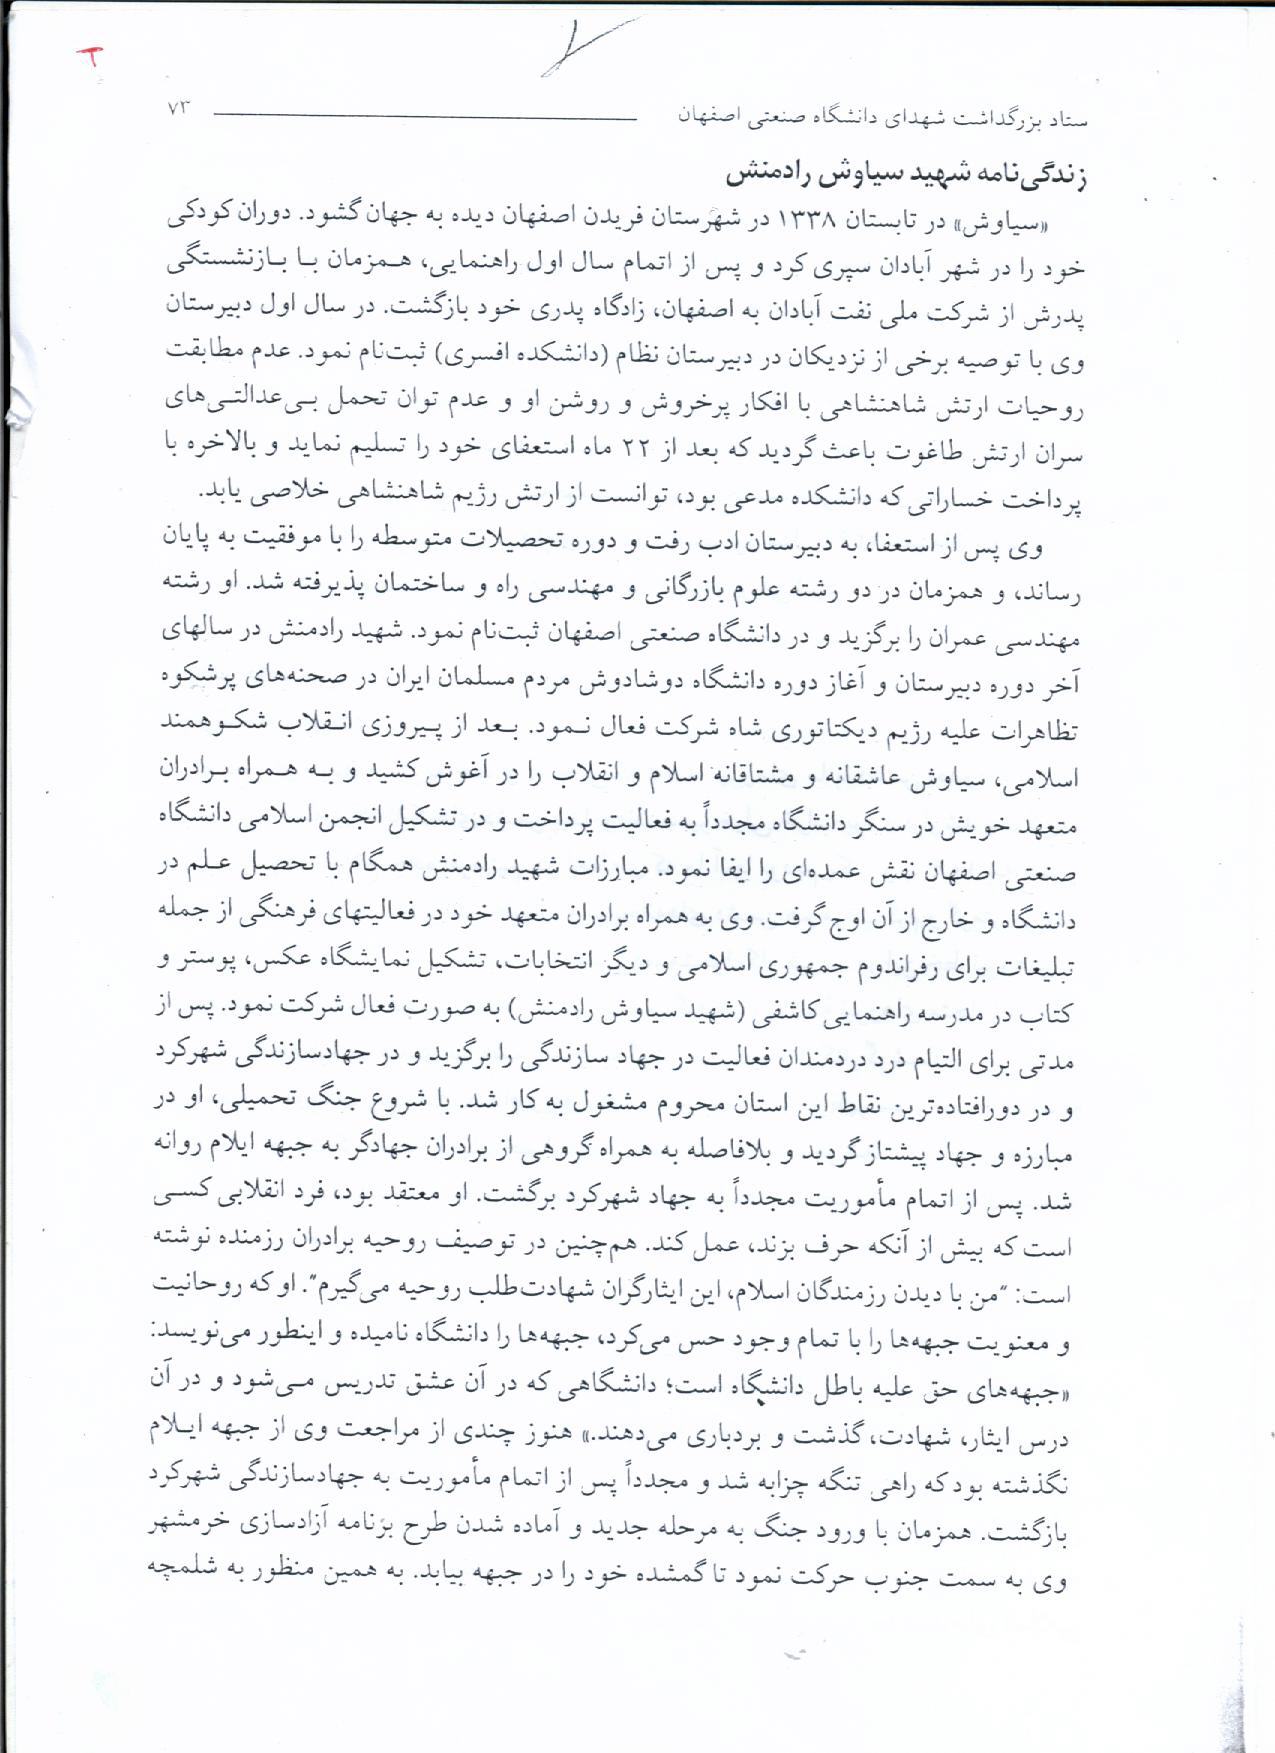 ستاد بزرگداشت شهدای دانشگاه صنعتی اصفهان ۷۳
زندگی‌نامه شهید سیاوش رادمنش
«سیاوش» در تابستان ۱۳۳۸ در شهرستان فریدن اصفهان دیده به جهان گشود. دوران کودکی
خود را در شهر آبادان سپری کرد و پس از اتمام سال اول راهنمایی، همزمان با بازنشستگی
پدرش از شرکت ملی نفت آبادان به اصفهان، زادگاه پدری خود بازگشت. در سال اول دبیرستان
وی با توصیه برخی از نزدیکان در دبیرستان نظام (دانشکده افسری) ثبت‌نام نمود. عدم مطابقت
روحیات ارتش شاهنشاهی با افکار پرخروش و روشن او و عدم توان تحمل بی‌عدالتی‌های
سران ارتش طاغوت باعث گردید که بعد از ۲۲ ماه استعفای خود را تسلیم نماید و بالاخره با
پرداخت خساراتی که دانشکده مدعی بود، توانست از ارتش رژیم شاهنشاهی خلاصی یابد.
وی پس از استعفا، به دبیرستان ادب رفت و دوره تحصیلات متوسطه را با موفقیت به پایان
رساند، و همزمان در دو رشته علوم بازرگانی و مهندسی راه و ساختمان پذیرفته شد. او رشته
مهندسی عمران را برگزید و در دانشگاه صنعتی اصفهان ثبت‌نام نمود. شهید رادمنش در سالهای
آخر دوره دبیرستان و آغاز دوره دانشگاه دوشادوش مردم مسلمان ایران در صحنه‌های پرشکوه
تظاهرات علیه رژیم دیکتاتوری شاه شرکت فعال نمود. بعد از پیروزی انقلاب شکوهمند
اسلامی، سیاوش عاشقانه و مشتاقانه اسلام و انقلاب را در آغوش کشید و به همراه برادران
متعهد خویش در سنگر دانشگاه مجدداً به فعالیت پرداخت و در تشکیل انجمن اسلامی دانشگاه
صنعتی اصفهان نقش عمده‌ای را ایفا نمود. مبارزات شهید رادمنش همگام با تحصیل علم در
دانشگاه و خارج از آن اوج گرفت. وی به همراه برادران متعهد خود در فعالیتهای فرهنگی از جمله
تبلیغات برای رفراندوم جمهوری اسلامی و دیگر انتخابات، تشکیل نمایشگاه عکس، پوستر و
کتاب در مدرسه راهنمایی کاشفی (شهید سیاوش رادمنش) به صورت فعال شرکت نمود. پس از
مدتی برای التیام درد دردمندان فعالیت در جهاد سازندگی را برگزید و در جهادسازندگی شهرکرد
و در دورافتاده‌ترین نقاط این استان محروم مشغول به کار شد. با شروع جنگ تحمیلی، او در
مبارزه و جهاد پیشتاز گردید و بلافاصله به همراه گروهی از برادران جهادگر به جبهه ایلام روانه
شد. پس از اتمام مأموریت مجدداً به جهاد شهرکرد برگشت. او معتقد بود، فرد انقلابی کسی
است که بیش از آنکه حرف بزند، عمل کند. هم‌چنین در توصیف روحیه برادران رزمنده نوشته
است: "من با دیدن رزمندگان اسلام، این ایثارگران شهادت‌طلب روحیه می‌گیرم". او که روحانیت
و معنویت جبهه‌ها را با تمام وجود حس می‌کرد، جبهه‌ها را دانشگاه نامیده و اینطور می‌نویسد:
«جبهه‌های حق علیه باطل دانشگاه است؛ دانشگاهی که در آن عشق تدریس می‌شود و در آن
درس ایثار، شهادت، گذشت و بردباری می‌دهند.» هنوز چندی از مراجعت وی از جبهه ایلام
نگذشته بود که راهی تنگه چزابه شد و مجدداً پس از اتمام مأموریت به جهادسازندگی شهرکرد
بازگشت. همزمان با ورود جنگ به مرحله جدید و آماده شدن طرح برنامه آزادسازی خرمشهر
وی به سمت جنوب حرکت نمود تا گمشده خود را در جبهه بیابد. به همین منظور به شلمچه